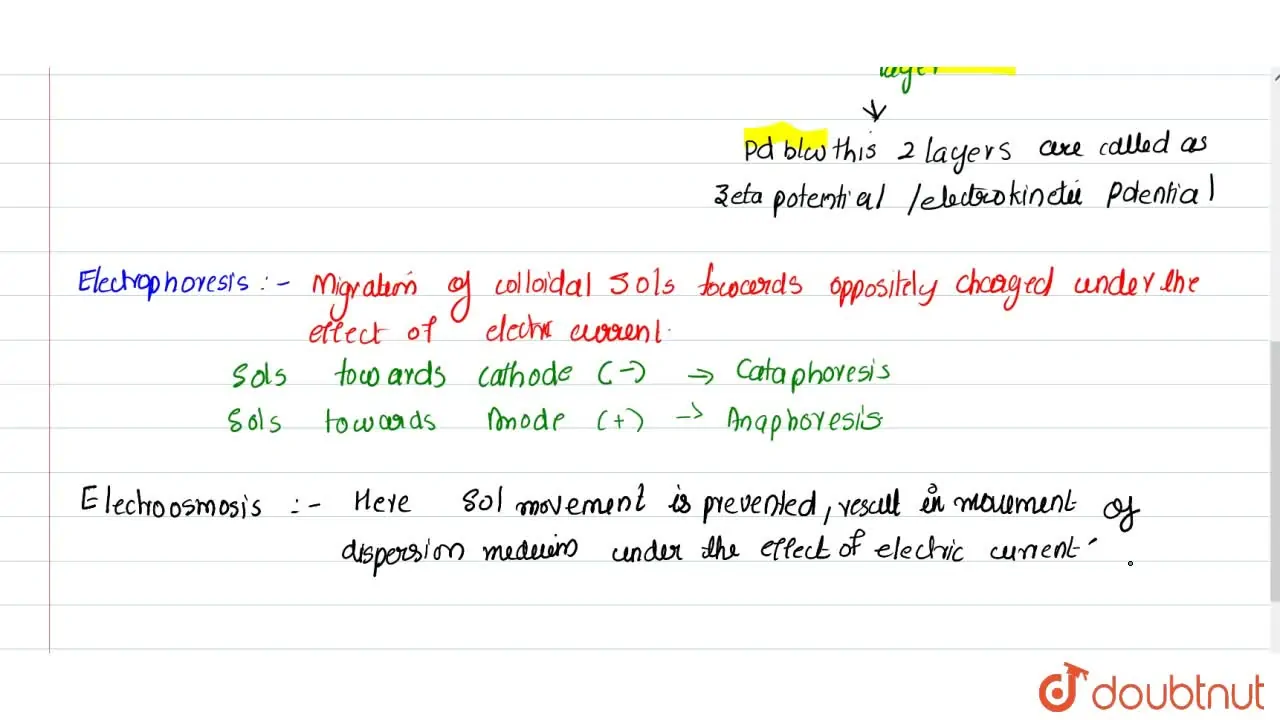 layer
Pd b/w this 2 layers are called as
Zeta potential / electrokinetic Potential
Electrophoresis :- Migration of colloidal Sols towards oppositely charged under the
effect of electric current.
Sols towards cathode (-) → Cataphoresis
Sols towards Anode (+) → Anaphoresis
Electroosmosis :- Here Sol movement is prevented, result in movement of
dispersion medium under the effect of electric current
doubtnut